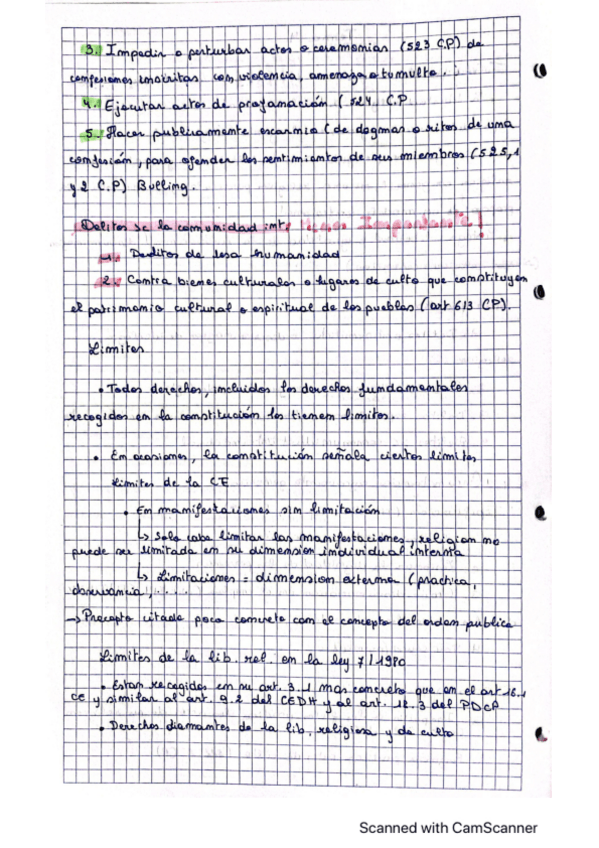 3. Impedir o perturbar actos o ceremonias (523 C.P) de
confesiones inscritas con violencia, amenaza o tumulto.
4. Ejecutar actos de profamación (524 C.P
5. Hacer publicamente escarnio (de dogmas o ritos de una
confesión, para ofender los sentimientos de sus miembros (525,1
y 2 C.P) Bulling.
Delitos se la comunidad int. Importante!
1. Delitos de lesa humanidad
2. Contra bienes culturales o lugares de culto que constituyen
el patrimonio cultural o espiritual de los pueblos (art 613 CP).
Limites
• Todos derechos, incluidos los derechos fundamentales
recogidos en la constitución los tienen limites.
• Em ocasiones, la constitución señala ciertos limites
Limites de la CE
• Em manifestaciones sim limitación
↳ Solo cabe limitar las manifestaciones, religion no
puede ser limitada en su dimension individual interna
↳ Limitaciones = dimension externa (practica,
observancia, ....
→ Precepto citado poco concreto com el concepto del orden publica
Limites de la lib. rel. en la ley 7/1980
• Estan recogidos en su art. 3.1 mas concreto que en el art 16.1
CE y similar al art. 9.2 del CEDH y al art. 18.3 del PDCP
• Derechos diamantes de la lib, religiosa y de culto
Scanned with CamScanner